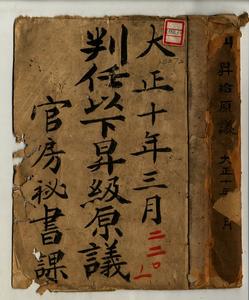 大正十年三月
二二〇ノ一
判任以下昇級原議
官房秘書課
昇給原議